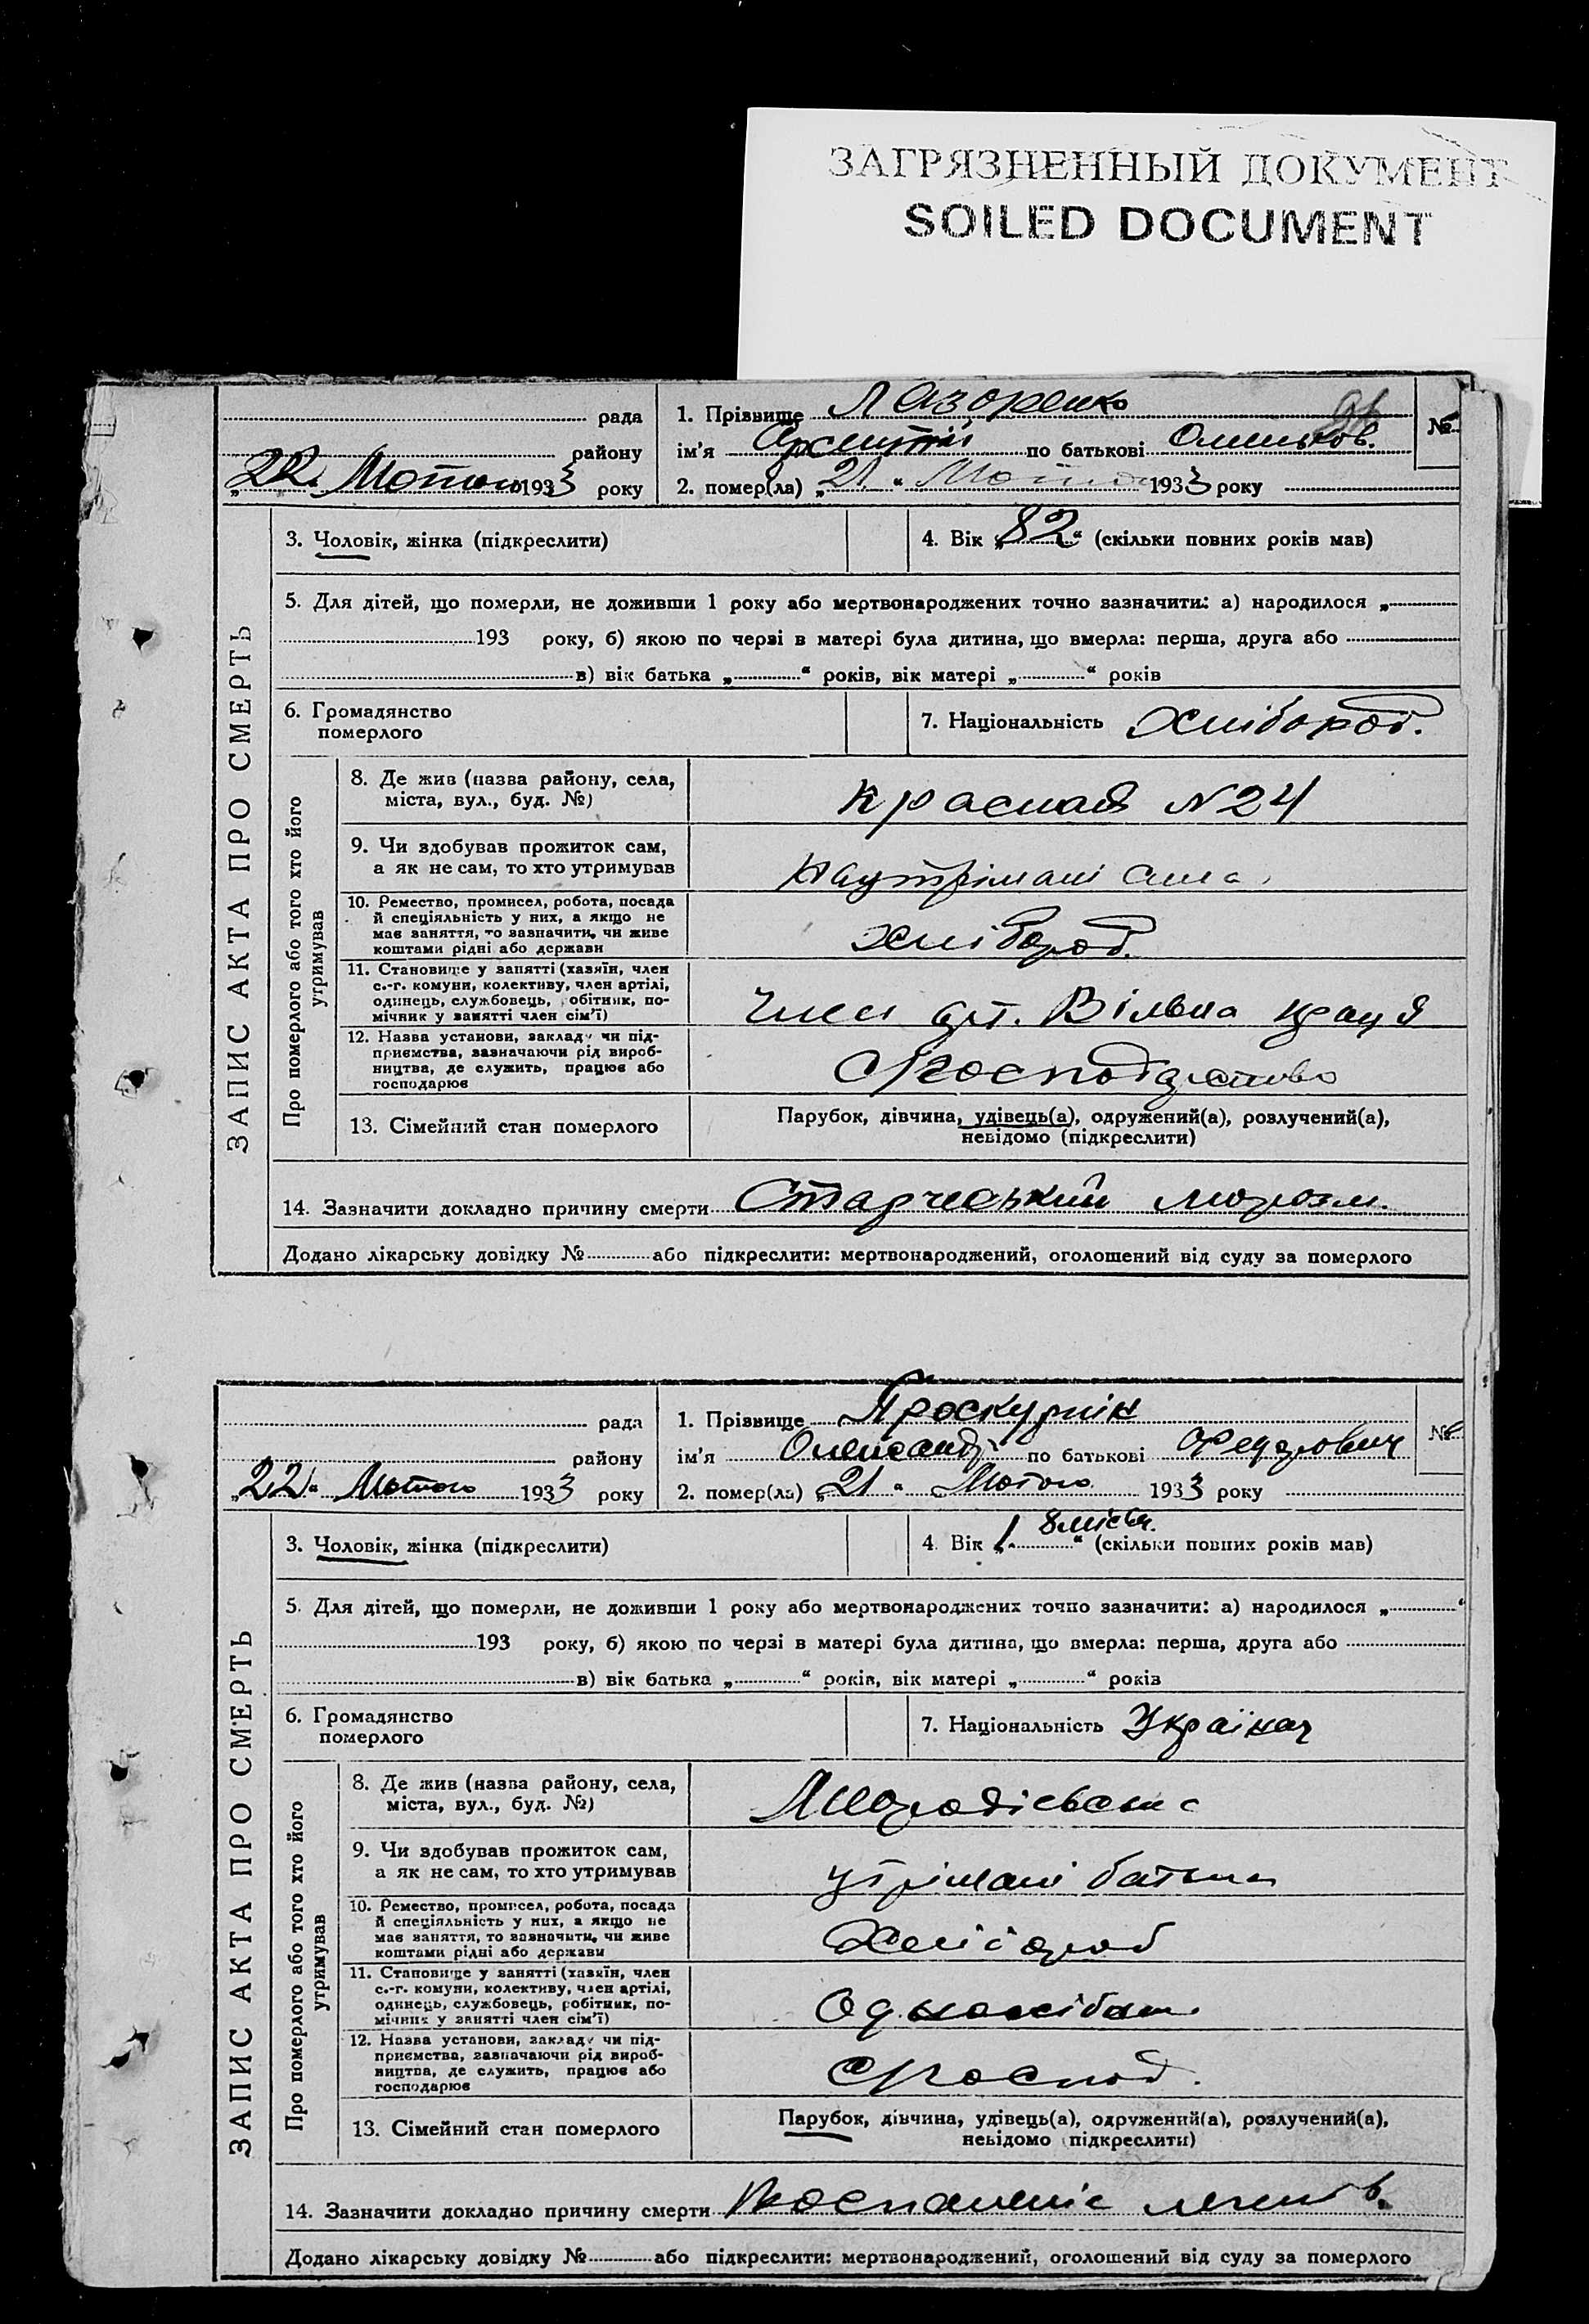 ЗАГРЯЗНЕННЫЙ ДОКУМЕНТ
SOILED DOCUMENT
рада
району
„22“ Лютого 1933 року
1. Прізвище Лазоренко
ім'я по батькові
2. помер(ла) „21“ Лютого 1933 року
№
ЗАПИС АКТА ПРО СМЕРТЬ
3. Чоловік, жінка (підкреслити)
4. Вік „82“ (скільки повних років мав)
5. Для дітей, що померли, не доживши 1 року або мертвонароджених точно зазначити: а) народилося „
193 року, б) якою по черзі в матері була дитина, що вмерла: перша, друга або
в) вік батька „ “ років, вік матері „ “ років
6. Громадянство
померлого
7. Національність Хлібороб.
Про померлого або того хто його
утримував
8. Де жив (назва району, села,
міста, вул., буд. №)
Красная N24
9. Чи здобував прожиток сам,
а як не сам, то хто утримував
10. Ремество, промисел, робота, посада
й спеціяльність у них, а якщо не
має заняття, то зазначити, чи живе
коштами рідні або держави
Хлібороб.
11. Становище у занятті (хазяїн, член
с.-г. комуни, колективу, член артілі,
одинець, службовець, робітник, по-
мічник у занятті член сім'ї)
Член арт. Вільна праця
12. Назва установи, закладу чи під-
приємства, зазначаючи рід вироб-
ництва, де служить, працює або
господарює
13. Сімейний стан померлого
Парубок, дівчина, удівець(а), одружений(а), розлучений(а),
невідомо (підкреслити)
14. Зазначити докладно причину смерти Старческий
Додано лікарську довідку № або підкреслити: мертвонароджений, оголошений від суду за померлого
рада
району
„22“ Лютого 1933 року
1. Прізвище Проскурнік
ім'я Олександр по батькові Федорович
2. помер(ла) „21“ Лютого 1933 року
№
ЗАПИС АКТА ПРО СМЕРТЬ
3. Чоловік, жінка (підкреслити)
8 місяц.
4. Вік „1“ (скільки повних років мав)
5. Для дітей, що померли, не доживши 1 року або мертвонароджених точно зазначити: а) народилося „ “
193 року, б) якою по черзі в матері була дитина, що вмерла: перша, друга або
в) вік батька „ “ років, вік матері „ “ років
6. Громадянство
померлого
7. Національність Українец
Про померлого або того хто його
утримував
8. Де жив (назва району, села,
міста, вул., буд. №)
9. Чи здобував прожиток сам,
а як не сам, то хто утримував
утрімані батька
10. Ремество, промисел, робота, посада
й спеціяльність у них, а якщо не
має заняття, то зазначити, чи живе
коштами рідні або держави
Хлібороб
11. Становище у занятті (хазяїн, член
с.-г. комуни, колективу, член артілі,
одинець, службовець, робітник, по-
мічник у занятті член сім'ї)
12. Назва установи, закладу чи під-
приємства, зазначаючи рід вироб-
ництва, де служить, працює або
господарює
13. Сімейний стан померлого
Парубок, дівчина, удівець(а), одружений(а), розлучений(а),
невідомо (підкреслити)
14. Зазначити докладно причину смерти
Додано лікарську довідку № або підкреслити: мертвонароджений, оголошений від суду за померлого